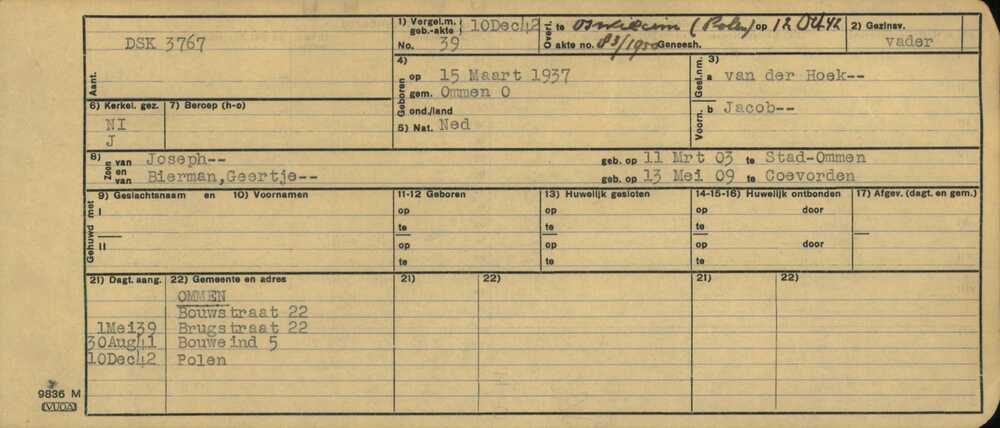 DSK 3767
Aant.
1) Vergel.m. geb.-akte 10Dec42
No. 39
Overl. te Oswiecim (Polen) op 12 Oct 42
akte no. 83/1950 Geneesh.
2) Gezinsv.
vader
4) Geboren
op 15 Maart 1937
gem. Ommen O
ond./land
5) Nat. Ned
3)
Gesl.nm. a van der Hoek--
Voorn. b Jacob--
6) Kerkel. gez. 7) Beroep (h-o)
NI
J
8) Zoon van Joseph-- geb. op 11 Mrt 03 te Stad-Ommen
en van Bierman,Geertje-- geb. op 13 Mei 09 te Coevorden
Gehuwd met
9) Geslachtsnaam en 10) Voornamen 11-12 Geboren 13) Huwelijk gesloten 14-15-16) Huwelijk ontbonden 17) Afgev. (dagt. en gem.)
I op op op door
te te te
II op op op door
te te te
21) Dagt. aang. 22) Gemeente en adres 21) 22) 21) 22)
OMMEN
Bouwstraat 22
1Mei39 Brugstraat 22
30Aug41 Bouweind 5
10Dec42 Polen
9836 M
VUGA